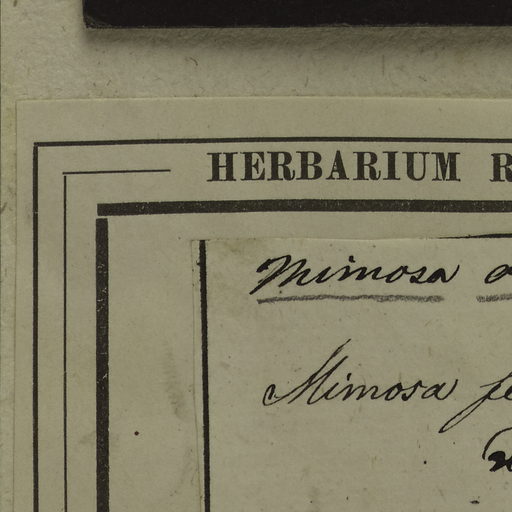 HERBARIUM
Mimosa
Mimosa